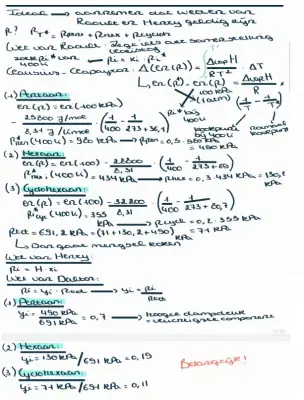 Ideaal → aannemen dat wetten van
Raoult en Henry geldig zijn
P? P_T* = P_pen + P_hex + P_cych
Wet van Raoult:
zoek Pi* van 400K → Pi = xi · Pi*
Clausius-Clapeyron: Δ(ln(P)) = ΔvapH / RT² · ΔT
(1) Pentaan:
ln(P) = ln(100 kPa)
- 25800 J/mol / 8,31 J/Kmol · (1/400 - 1/(273+36,1))
P*pen (400K) = 980 kPa → Ppen = 0,5 · 980 kPa
= 490 kPa
(2) Hexaan:
ln(P) = ln(100) - 28800/8,31 · (1/400 - 1/(273+69))
P*hex (400K) = 434 kPa → Phex = 0,3 · 434 kPa = 130,2 kPa
(3) Cyclohexaan:
ln(P) = ln(100) - 32200/8,31 · (1/400 - 1/(273+80,7))
P*cyc (400K) = 355 kPa → Pcych = 0,2 · 355 kPa
= 71 kPa
Ptot = 691,2 kPa = (71 + 130,2 + 490) kPa
↳ Dan gaat mengsel koken
Wet van Henry:
Pi = H · xi
Wet van Dalton:
Pi = yi · Ptot → yi = Pi / Ptot
(1) Pentaan:
yi = 490 kPa / 691 kPa = 0,7 → hoogste dampdruk
= vluchtigste component
(2) Hexaan:
yi = 130 kPa / 691 kPa = 0,19
Belangrijk!
(3) Cyclohexaan:
yi = 71 kPa / 691 kPa = 0,11